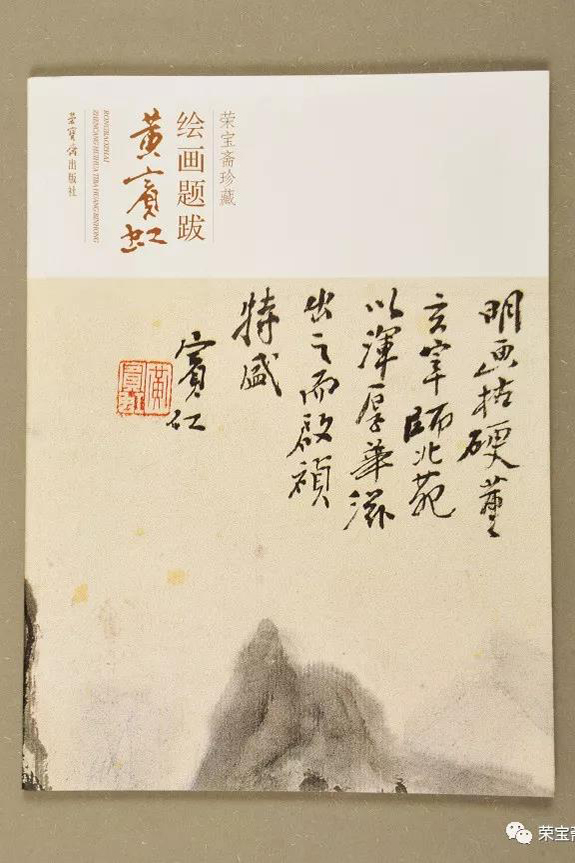 荣宝斋珍藏
绘画题跋
黄宾虹
RONGBAOZHAI
ZHENCANG HUIHUA TIBA HUANG BINHONG
荣宝斋出版社
明画枯硬董
玄宰師北苑
以渾厚華滋
出之而啟禎
特盛
賓虹
黃賓虹
荣宝斋